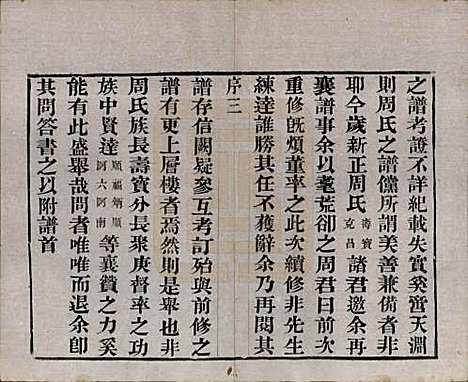 之譜考證不詳紀載失實奚啻天淵
則周氏之譜儻所謂美善兼備者非
耶今歲新正周氏壽寶克昌諸君邀余再
襄譜事余以耄荒卻之周君曰前次
重修旣煩董率之此次續修非先生
練達誰勝其任不獲辭余乃再閱其
序三
譜存信闕疑參互考訂殆與前修之
譜有更上層樓者焉然則是舉也非
周氏族長壽寶分長聚庚督率之功
族中賢達順福炳順阿六阿南等襄贊之力奚
能有此盛舉哉問者唯唯而退余卽
其問答書之以附譜首